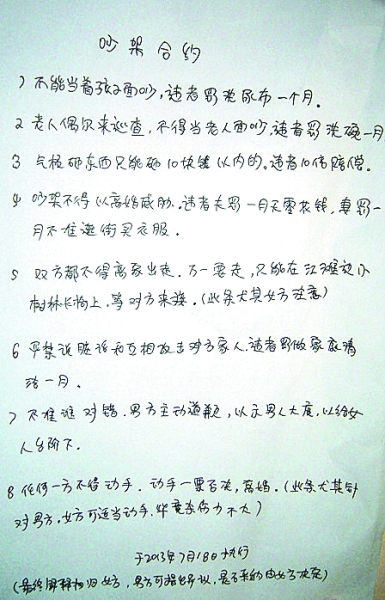 吵架合约
1 不能当着孩子面吵,违者罚洗尿布一个月。
2 老人偶尔来巡查,不得当老人面吵,违者罚洗碗一月
3 气极砸东西只能砸10块钱以内的。违者10倍赔偿。
4 吵架不得以离婚威胁。违者夫罚一月无零花钱,妻罚一
月不准逛街买衣服。
5 双方都不得离家出走。万一要走,只能在江堤边小
树林长椅上,等对方来接。(此条尤其女方注意)
6 严禁说脏话和互相攻击对方家人,违者罚做家庭清
洁一月。
7 不准谁对错,男方主动道歉,以示男人大度,以给女
人台阶下。
8 任何一方不得动手。动手一票否决,离婚。(此条尤其针
对男方,女方可适当动手,毕竟杀伤力不大)
于2013年7月18日执行
(最终解释权归女方,男方可提出异议,是否采纳由女方决定)